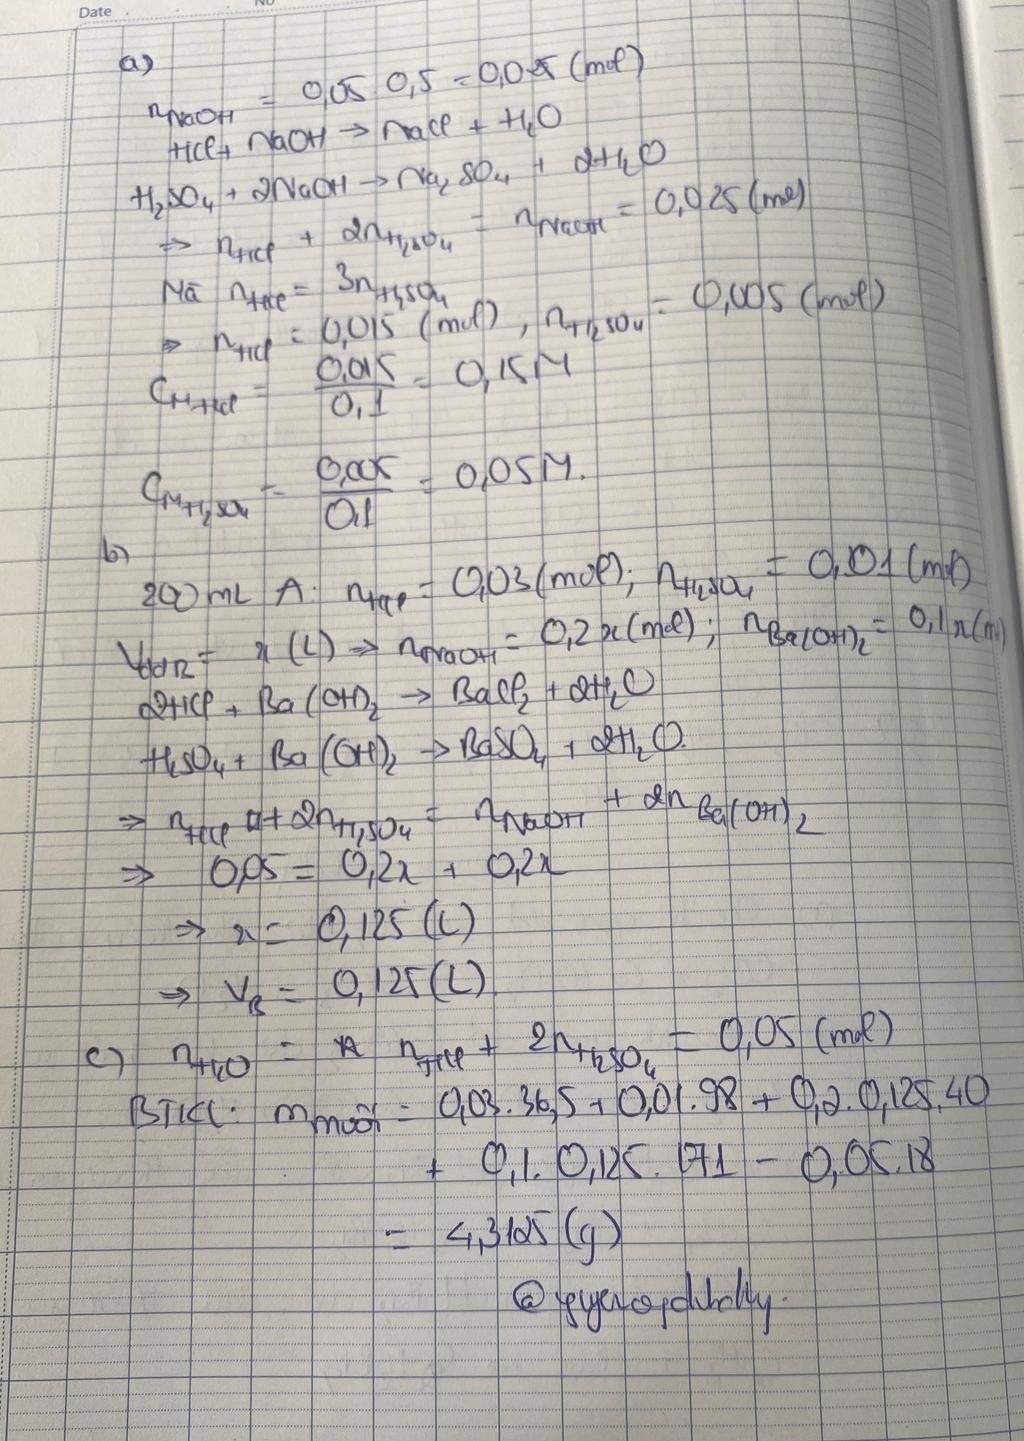 Date No
a)
nNaOH = 0,05.0,5 = 0,025 (mol)
HCl + NaOH → NaCl + H2O
H2SO4 + 2NaOH → Na2SO4 + 2H2O
⇒ nHCl + 2nH2SO4 = nNaOH = 0,025 (mol)
Mà nHCl = 3nH2SO4
⇒ nHCl = 0,015 (mol), nH2SO4 = 0,005 (mol)
CM HCl = 0,015/0,1 = 0,15M
CM H2SO4 = 0,005/0,1 = 0,05M.
b)
200 mL A: nHCl = 0,03 (mol); nH2SO4 = 0,01 (mol)
Vdd B = x (L) ⇒ nNaOH = 0,2x (mol); nBa(OH)2 = 0,1x (m
2HCl + Ba(OH)2 → BaCl2 + 2H2O
H2SO4 + Ba(OH)2 → BaSO4 + 2H2O.
⇒ nHCl + 2nH2SO4 = nNaOH + 2nBa(OH)2
⇒ 0,05 = 0,2x + 0,2x
⇒ x = 0,125 (L)
⇒ VB = 0,125 (L)
c) nH2O = nHCl + 2nH2SO4 = 0,05 (mol)
BTKL: mmuối = 0,03.36,5 + 0,01.98 + 0,2.0,125.40
+ 0,1.0,125.171 - 0,05.18
= 4,3125 (g)